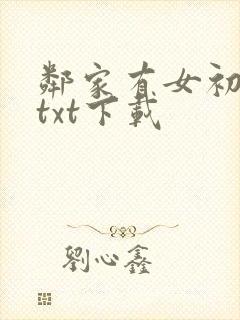 鄰家有女初
txt下載
劉心鑫